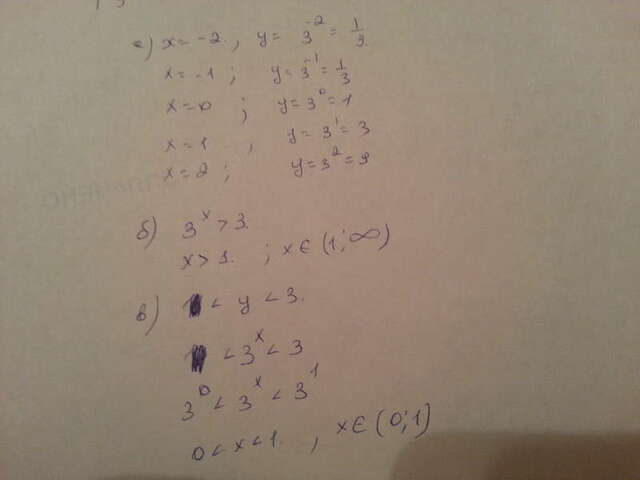 а) x = -2. , y = 3^-2 = 1/3.
x = -1 ; y = 3^-1 = 1/3
x = 0 ; y = 3^0 = 1
x = 1 , y = 3^1 = 3
x = 2 ; y = 3^2 = 9
б) 3^x > 3.
x > 1. ; x ∈ (1; ∞)
в) < y < 3.
< 3^x < 3
3^0 < 3^x < 3^1
0 < x < 1. , x ∈ (0; 1)